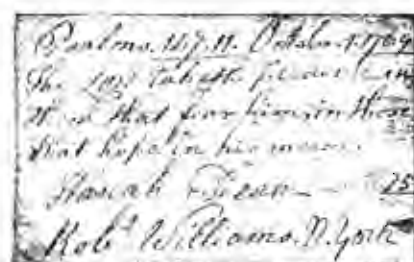 Psalms. 147. 11. October. 1. 1769
The Lord taketh pleasure in
them that fear him, in those
that hope in his mercy.
Hanah
Robt Williams. N. York